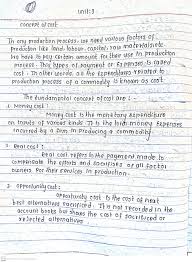 unit:3
concept of cost:
In any production process, we need various factors of
production like land, labour, capital, raw materials etc.
we have to pay certain amount for their use in production
process. This types of payment or expenses is called
cost. In other words, all the expenditures related to
production process of a commodity is known as cost.
The fundamental concept of cost are:-
1. Money cost:
Money cost is the monetary expenditure
on inputs of various kinds. It is the total money expenses
incurred by a firm in producing a commodity
2. Real cost:
Real cost refers to the payment made to
compensate the efforts and sacrifices of all factor
owners for their services in production.
3. opportunity cost:
opportunity cost is the cost of next
best alternatives sacrificed. It is not recorded in the
account books but shows the cost of sacrificed or
rejected alternatives